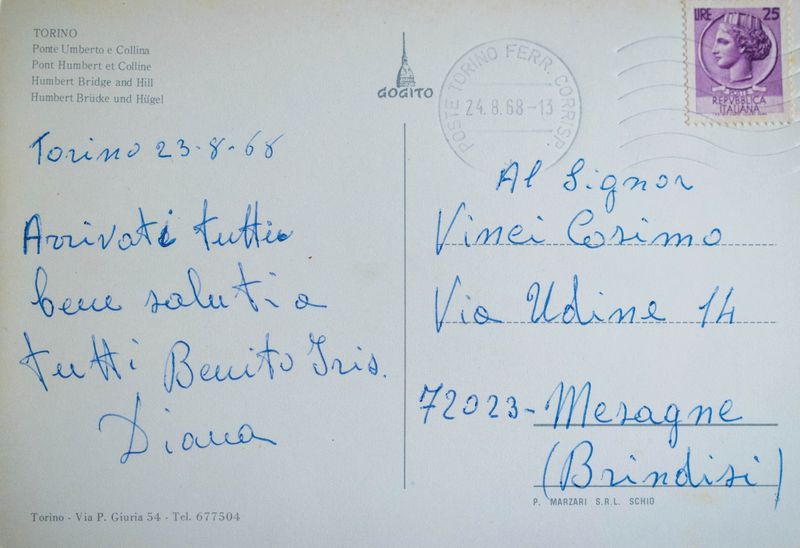 TORINO
Ponte Umberto e Collina
Pont Humbert et Colline
Humbert Bridge and Hill
Humbert Brücke und Hügel
GOGITO
POSTE TORINO FERR. CORRISP.
24.8.68-13
LIRE 25
REPVBBLICA
ITALIANA
Torino 23-8-68
Arrivati tutti
bene saluti a
tutti Benito Iris.
Diana
Al Signor
Vinci Cosimo
Via Udine 14
72023-Mesagne
(Brindisi)
P. MARZARI S.R.L. SCHIO
Torino - Via P. Giuria 54 - Tel. 677504